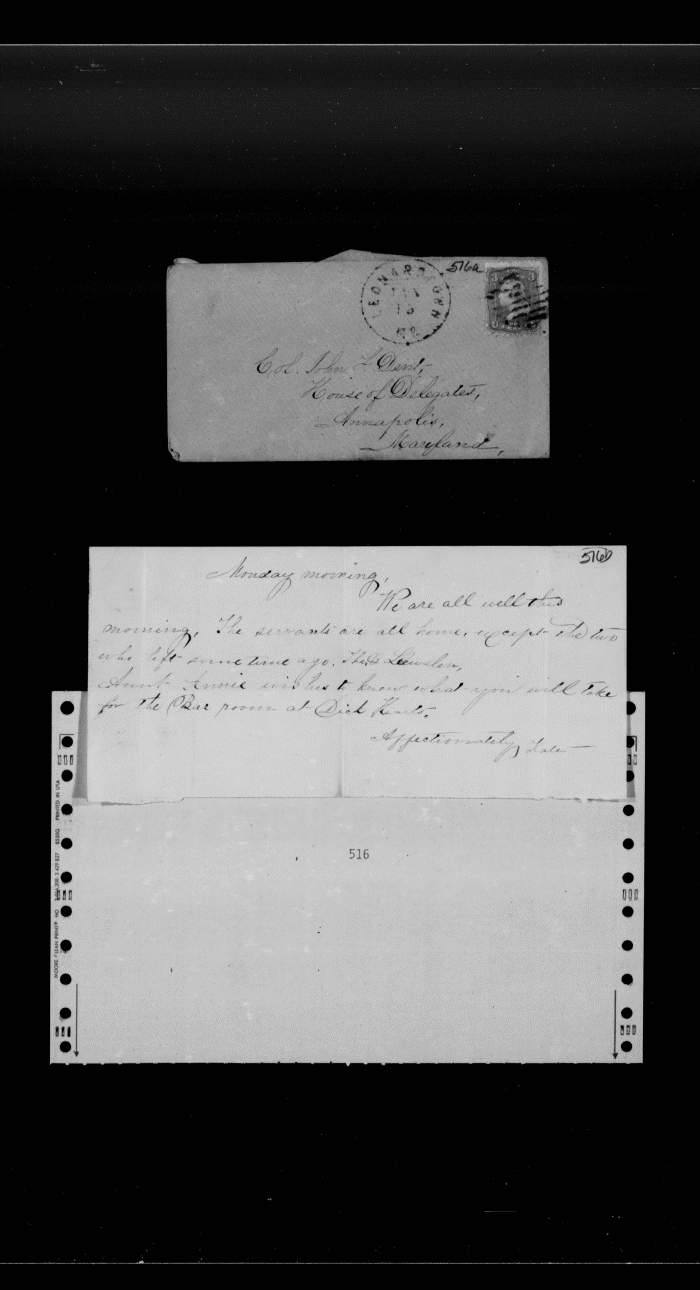 516a
LEONARDTOWN
Col. John F. Dent,
House of Delegates,
Annapolis,
Maryland,
516b
Monday morning,
We are all well this
morning. The servants are all home, except the two
who left some time ago.
Aunt Annie wishes to know what you will take
for the Bar room at Dick
Affectionately,
516
PRINTED IN USA